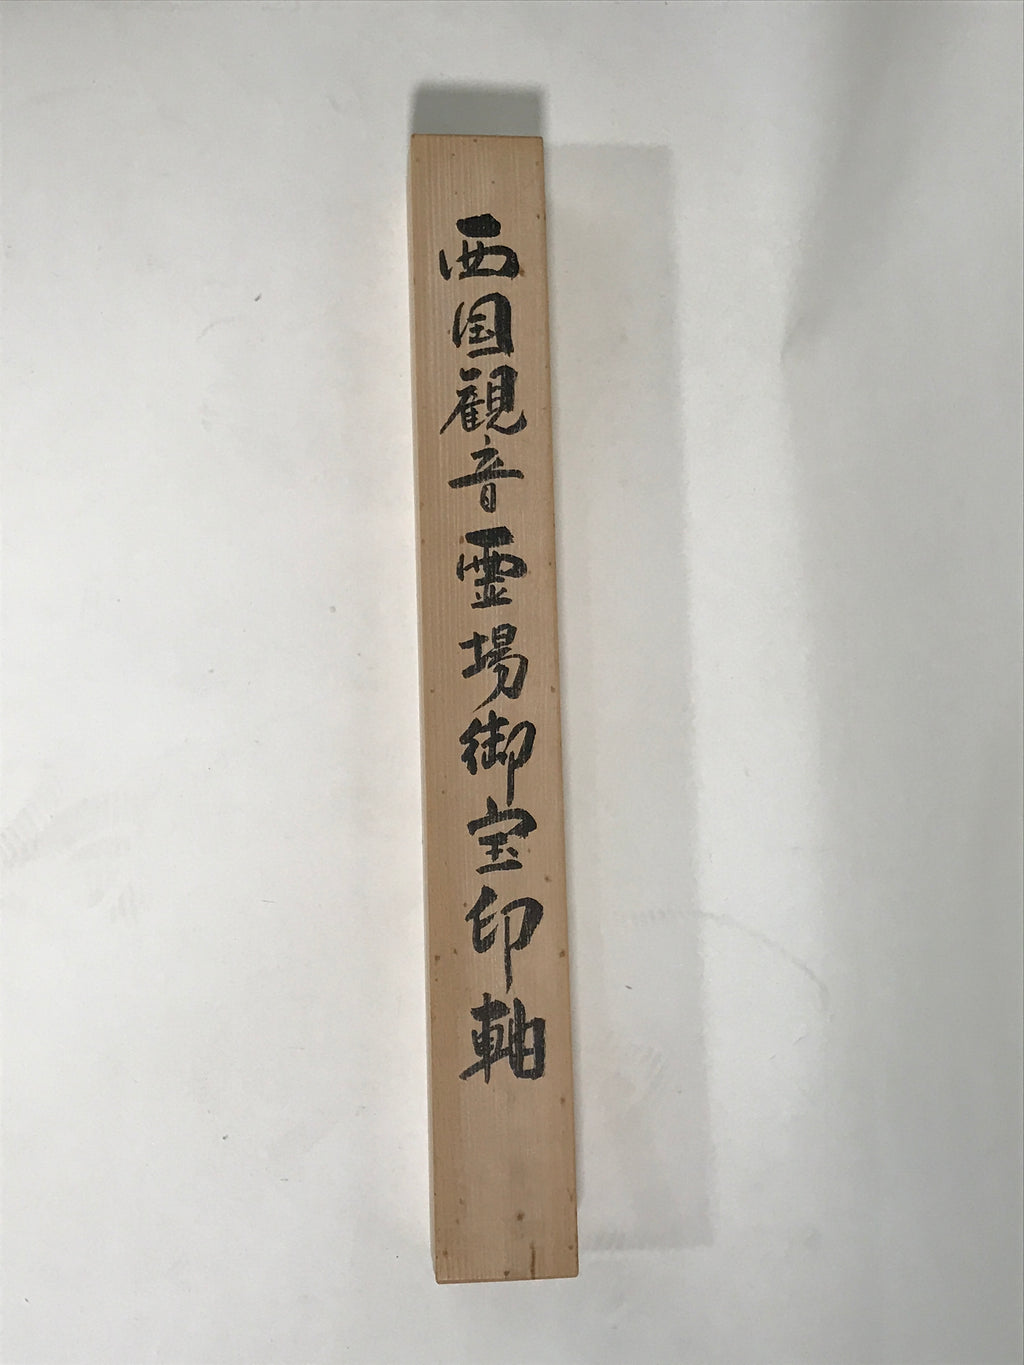 西国観音霊場御宝印軸